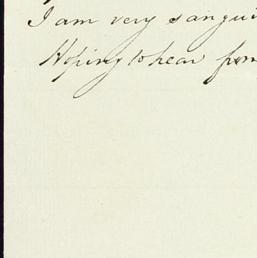 I am very sangui
Hoping to hear from